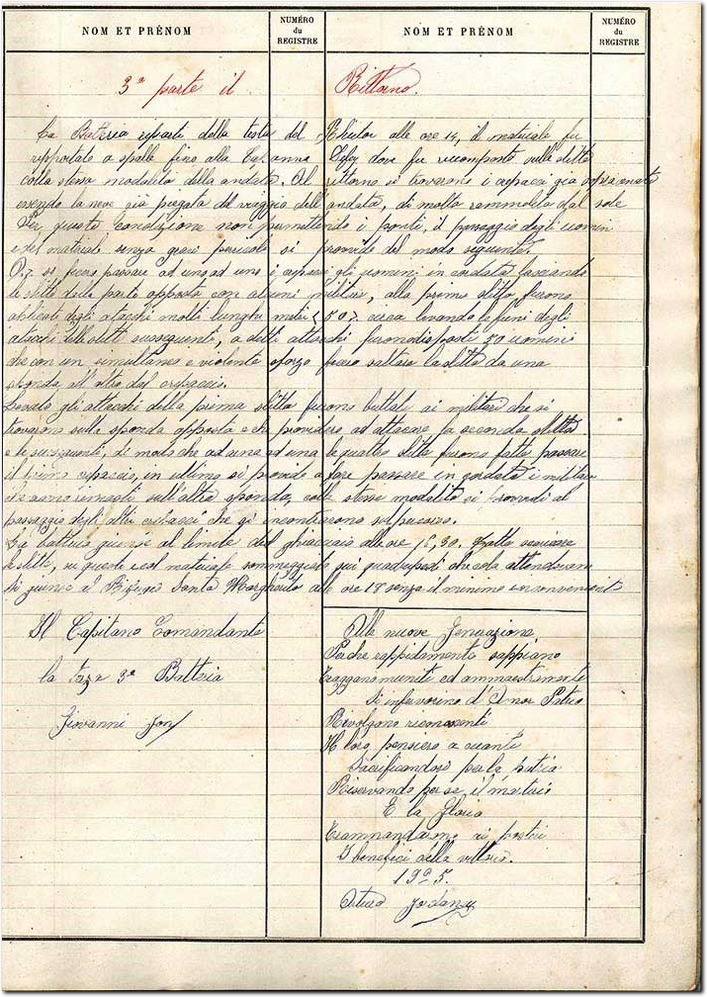 NOM ET PRÉNOM
NUMÉRO
du
REGISTRE
NOM ET PRÉNOM
NUMÉRO
du
REGISTRE
3ª parte il Rittorno.
La Batteria riparte della testa del Rhuitor alle ore 14, il matriale fu
ripportato a spalle fino alla Capanna Defey dove fu ricomposto sulle slitte
colla stessa modalita della andata. Il rittorno si trovarono i crepacci gia
essendo la neve gia pregata del viaggio dell'andata, di molto rammolita dal sole
Per questo condizione non permettendo i ponti, il passaggio degli uomini
e del matriale senza gravi pericoli si provide del modo seguente.
si fecero passare ad uno ad uno i crepacci gli uomini in cordata lasciando
le slitte della parte opposta con alcuni militari, alla prima slitta furono
aplicati degli atacchi molti lunghi metri (50) circa levando le funi degli
atacchi delle slitte susseguenti, a detti attacchi furono disposti 50 uomini
che con un simultaneo e violento sforzo fecero saltare la slitta da una
sponda all'altra del crepaccio.
Levate gli attacchi della prima slitta furono buttati ai militari che si
trovarono sulla sponda opposta e che providero ad attacare la seconda slitta
e le susseguenti, di modo che ad una ad una le quattro slitte furono fatte passare
il primo crepaccio, in ultimo si provide a fare passare in cordata i militari
che erano rimasti sull'altra sponda, colle stesse modalita si provvedi al
passaggio degli altri crepacci che si incontrarono sul percorso.
La batteria giunse al limite del ghiacciaio alle ore 15,30. Fatto
le slitte, su queste e col matriale someggiato sui quadrupedi che cola attendevano
si giunse al Rifugio Santa Margherita alle ore 18 senza il minimo inconveniente
Il Capitano Comandante
la 3ª Batteria
Giovanni
Alle nuove Generazione
Perche rappidamente sappiano
Crescano munite ed ammaestrate
Si infervorino d'Amor Patrio
Rivolgono riconoscenti
Il loro pensiero a quanti
Sacrificandosi per la patria
Riservando per se il matirio
E la Gloria
Tramandarono ai posteri
I benefici della vittoria.
1925.
Arturo Jordaney